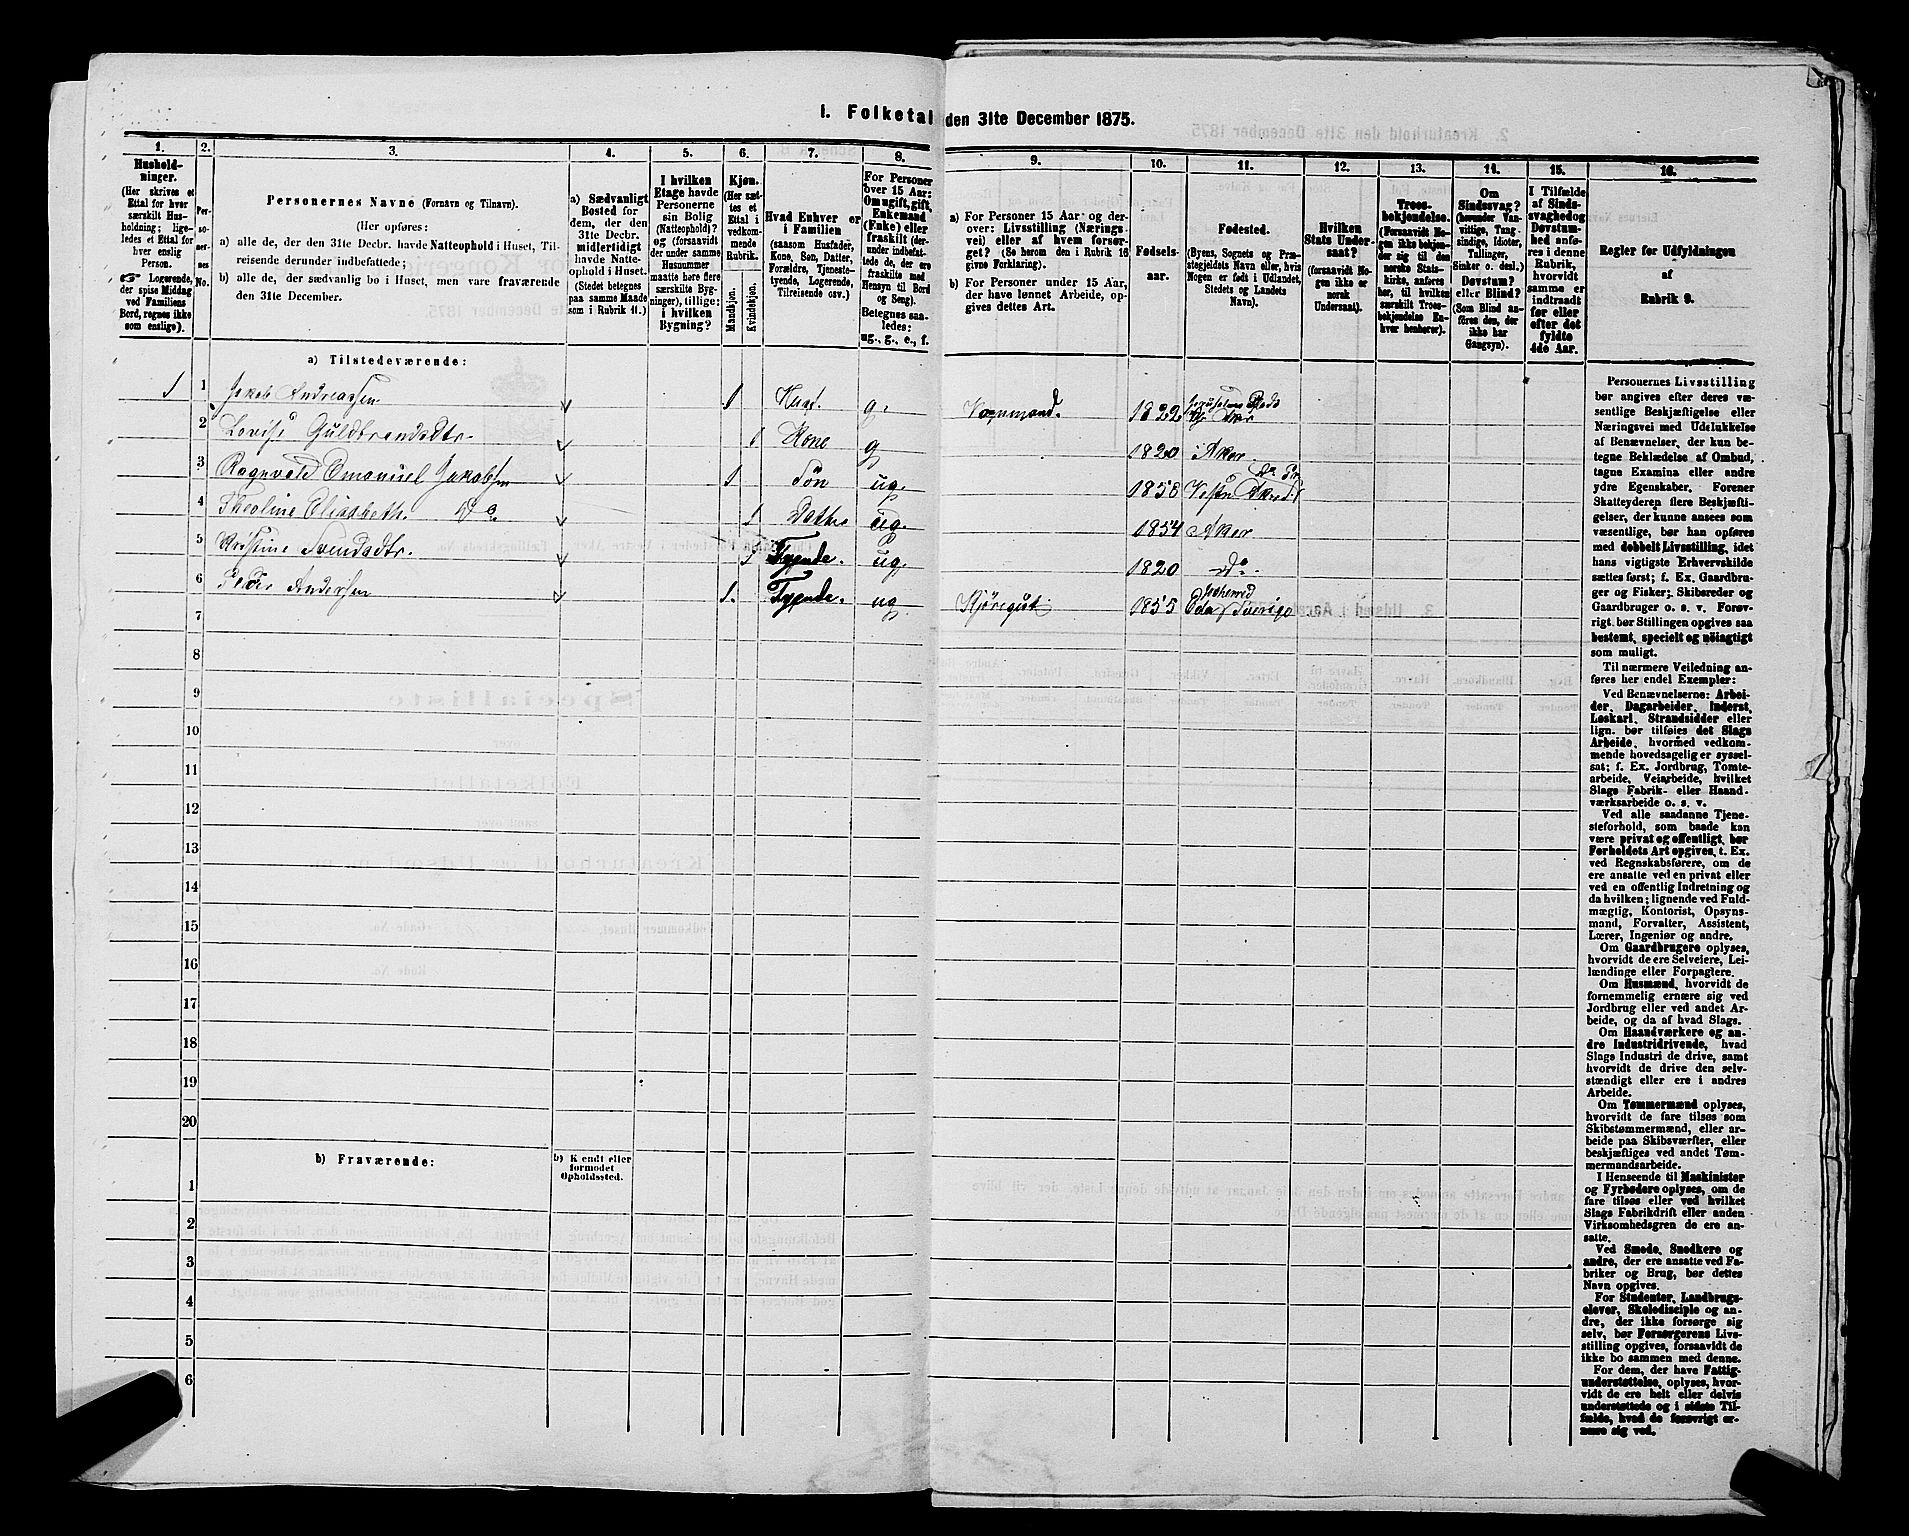 1. Folketal den 31te December 1875.
1.
Hushold-
ninger.
(Her skrives et
Ettal for hver
særskilt Hus-
holdning; lige-
ledes et Ettal for
hver enslig
Person.
☞ Logerende,
der spise Middag
ved Familiens
Bord, regnes ikke
som enslige).
2.
Per-
so-
ner-
nes
No.
3.
Personernes Navne (Fornavn og Tilnavn).
(Her opføres:
a) alle de, der den 31te Decbr. havde Natteophold i Huset, Til-
reisende derunder indbefattede;
b) alle de, der sædvanlig bo i Huset, men vare fraværende
den 31te December.
4.
a) Sædvanligt
Bosted for
dem, der den
31te Decbr.
midlertidigt
havde Natte-
ophold i Huset.
(Stedet betegnes
paa samme Maade
som i Rubrik 11.)
5.
I hvilken
Etage havde
Personerne
sin Bolig
(Natteophold)?
og (forsaavidt
der under samme
Husnummer
maatte høre flere
særskilte Byg-
ninger), tillige:
i hvilken
Bygning?
6.
Kjøn.
(Her sæt-
tes et
Ettal i
vedkom-
mende
Rubrik.
Mandkjøn.
Kvindekjøn.
7.
Hvad Enhver er
i Familien
(saasom Husfader,
Kone, Søn, Datter,
Forældre, Tjeneste-
tyende, Logerende,
Tilreisende osv.)
8.
For Personer
over 15 Aar:
Om ugift, gift,
Enkemand
(Enke) eller
fraskilt (der-
under indbefat-
tede de, der ere
fraskilte med
Hensyn til Bord
og Seng).
Betegnes saa-
ledes:
ug., g., e., f.
9.
a) For Personer 15 Aar og der-
over: Livsstilling (Nærings-
vei) eller af hvem forsør-
get? (Se herom den i Rubrik 16
givne Forklaring).
b) For Personer under 15 Aar,
der have lønnet Arbeide, op-
gives dettes Art.
10.
Fødsels-
aar.
11.
Fødested.
(Byens, Sognets og Præ-
stegjeldets Navn eller, hvis
Nogen er født i Udlandet,
Stedets og Landets
Navn).
12.
Hvilken
Stats Under-
saat?
(forsaavidt No-
gen ikke er
norsk
Undersaat).
13.
Troes-
bekjendelse.
(Forsaavidt No-
gen ikke bekjen-
der sig til den
norske Stats-
kirke, anføres
her, til hvilken
særskilt Troes-
bekjendelse En-
hver henhører).
14.
Om
Sindssvag?
(herunder Van-
vittige, Tung-
sindige, Idioter,
Tullinger,
Sinker o. desl.)
Døvstum?
eller Blind?
(Som Blind an-
føres den, der
ikke har
Gangsyn).
15.
I Tilfælde
af Sinds-
svaghed og
Døvstum-
hed anfø-
res i denne
Rubrik,
hvorvidt
samme er
indtraadt
før eller
efter det
fyldte
4de Aar.
16.
Regler for Udfyldningen
af
Rubrik 9.
a) Tilstedeværende:
1 1 Jakob Andreassen 1 Husf. g. 1822
2 Lovise Guldbrandsdtr. 1 Kone g 1820 Aker
3 Ragnvald Emanuel Jakobsen 1 Søn ug. 1858
4 Theoline Elisabeth Do 1 Datter ug. 1854 Aker
5 Kristine Svendsdtr. 1 Tyende. ug. 1820 Do.
6 Peder Andersen 1. Tyende. ug Kjøregut 1855 Sverige
7
8
9
10
11
12
13
14
15
16
17
18
19
20
b) Fraværende:
b) Kendt eller
formodet
Opholdssted.
1
2
3
4
5
6
Personernes Livsstilling
bør angives efter deres væ-
sentlige Beskjæftigelse eller
Næringsvei med Udelukkelse
af Benævnelser, der kun be-
tegne Beklædelse af Ombud,
tagne Examina eller andre
ydre Egenskaber. Forener
Skatteyderen flere Beskjæfti-
gelser, der kunne ansees som
væsentlige, bør han opføres
med dobbelt Livsstilling, idet
hans vigtigste Erhvervskilde
sættes først; f. Ex. Gaardbru-
ger og Fisker; Skibsreder og
Gaardbruger o. s. v. Forøv-
rigt bør Stillingen opgives saa
bestemt, specielt og nøiagtigt
som muligt.
Til nærmere Veiledning an-
føres her endel Exempler:
Ved Benævnelserne: Arbei-
der, Dagarbeider, Inderst,
Løskarl, Strandsidder eller
lign. bør tilføies det Slags
Arbeide, hvormed vedkom-
mende hovedsagelig er syssel-
sat; f. Ex. Jordbrug, Tomte-
arbeide, Veiarbeide, hvilket
Slags Fabrik- eller Haand-
værksarbeide o. s. v.
Ved alle saadanne Tjene-
steforhold, som baade kan
være privat og offentligt, bør
Forholdets Art opgives, t. Ex.
ved Regnskabsførere, om de
ere ansatte ved en privat eller
ved en offentlig Indretning og
da hvilken; lignende ved Fuld-
mægtig, Kontorist, Opsyns-
mand, Forvalter, Assistent,
Lærer, Ingeniør og andre.
Om Gaardbrugere oplyses,
hvorvidt de ere Selveiere, Lei-
lændinge eller Forpagtere.
Om Husmænd, hvorvidt de
fornemmelig ernære sig ved
Jordbrug eller ved andet Ar-
beide, og da af hvad Slags.
Om Haandværkere og an-
dre Industridrivende, hvad
Slags Industri de drive, samt
hvorvidt de drive den selv-
stændigt eller ere i andres
Arbeide.
Om Tømmermænd oplyses,
hvorvidt de fare tilsøs som
Skibstømmermænd, eller ar-
beide paa Skibsværfter, eller
beskjæftiges ved andet Tøm-
mermandsarbeide.
I Henseende til Maskinister
og Fyrbødere oplyses, om de
fare tilsøs eller ved hvilket
Slags Fabrikdrift eller anden
Virksomhedsgren de ere an-
satte.
Ved Smede, Snedkere og
andre, der ere ansatte ved Fa-
briker og Brug, bør dettes
Navn opgives.
For Studenter, Landbrugs-
elever, Skoledisciple og an-
dre, der ikke forsørge sig
selv, bør Forsørgerens Livs-
stilling opgives, forsaavidt de
ikke bo sammen med denne.
For dem, der have Fattig-
understøttelse, oplyses, hvor-
vidt de ere helt eller delvis
understøttede og i sidste Til-
fælde, hvad de forøvrigt er-
nære sig ved.